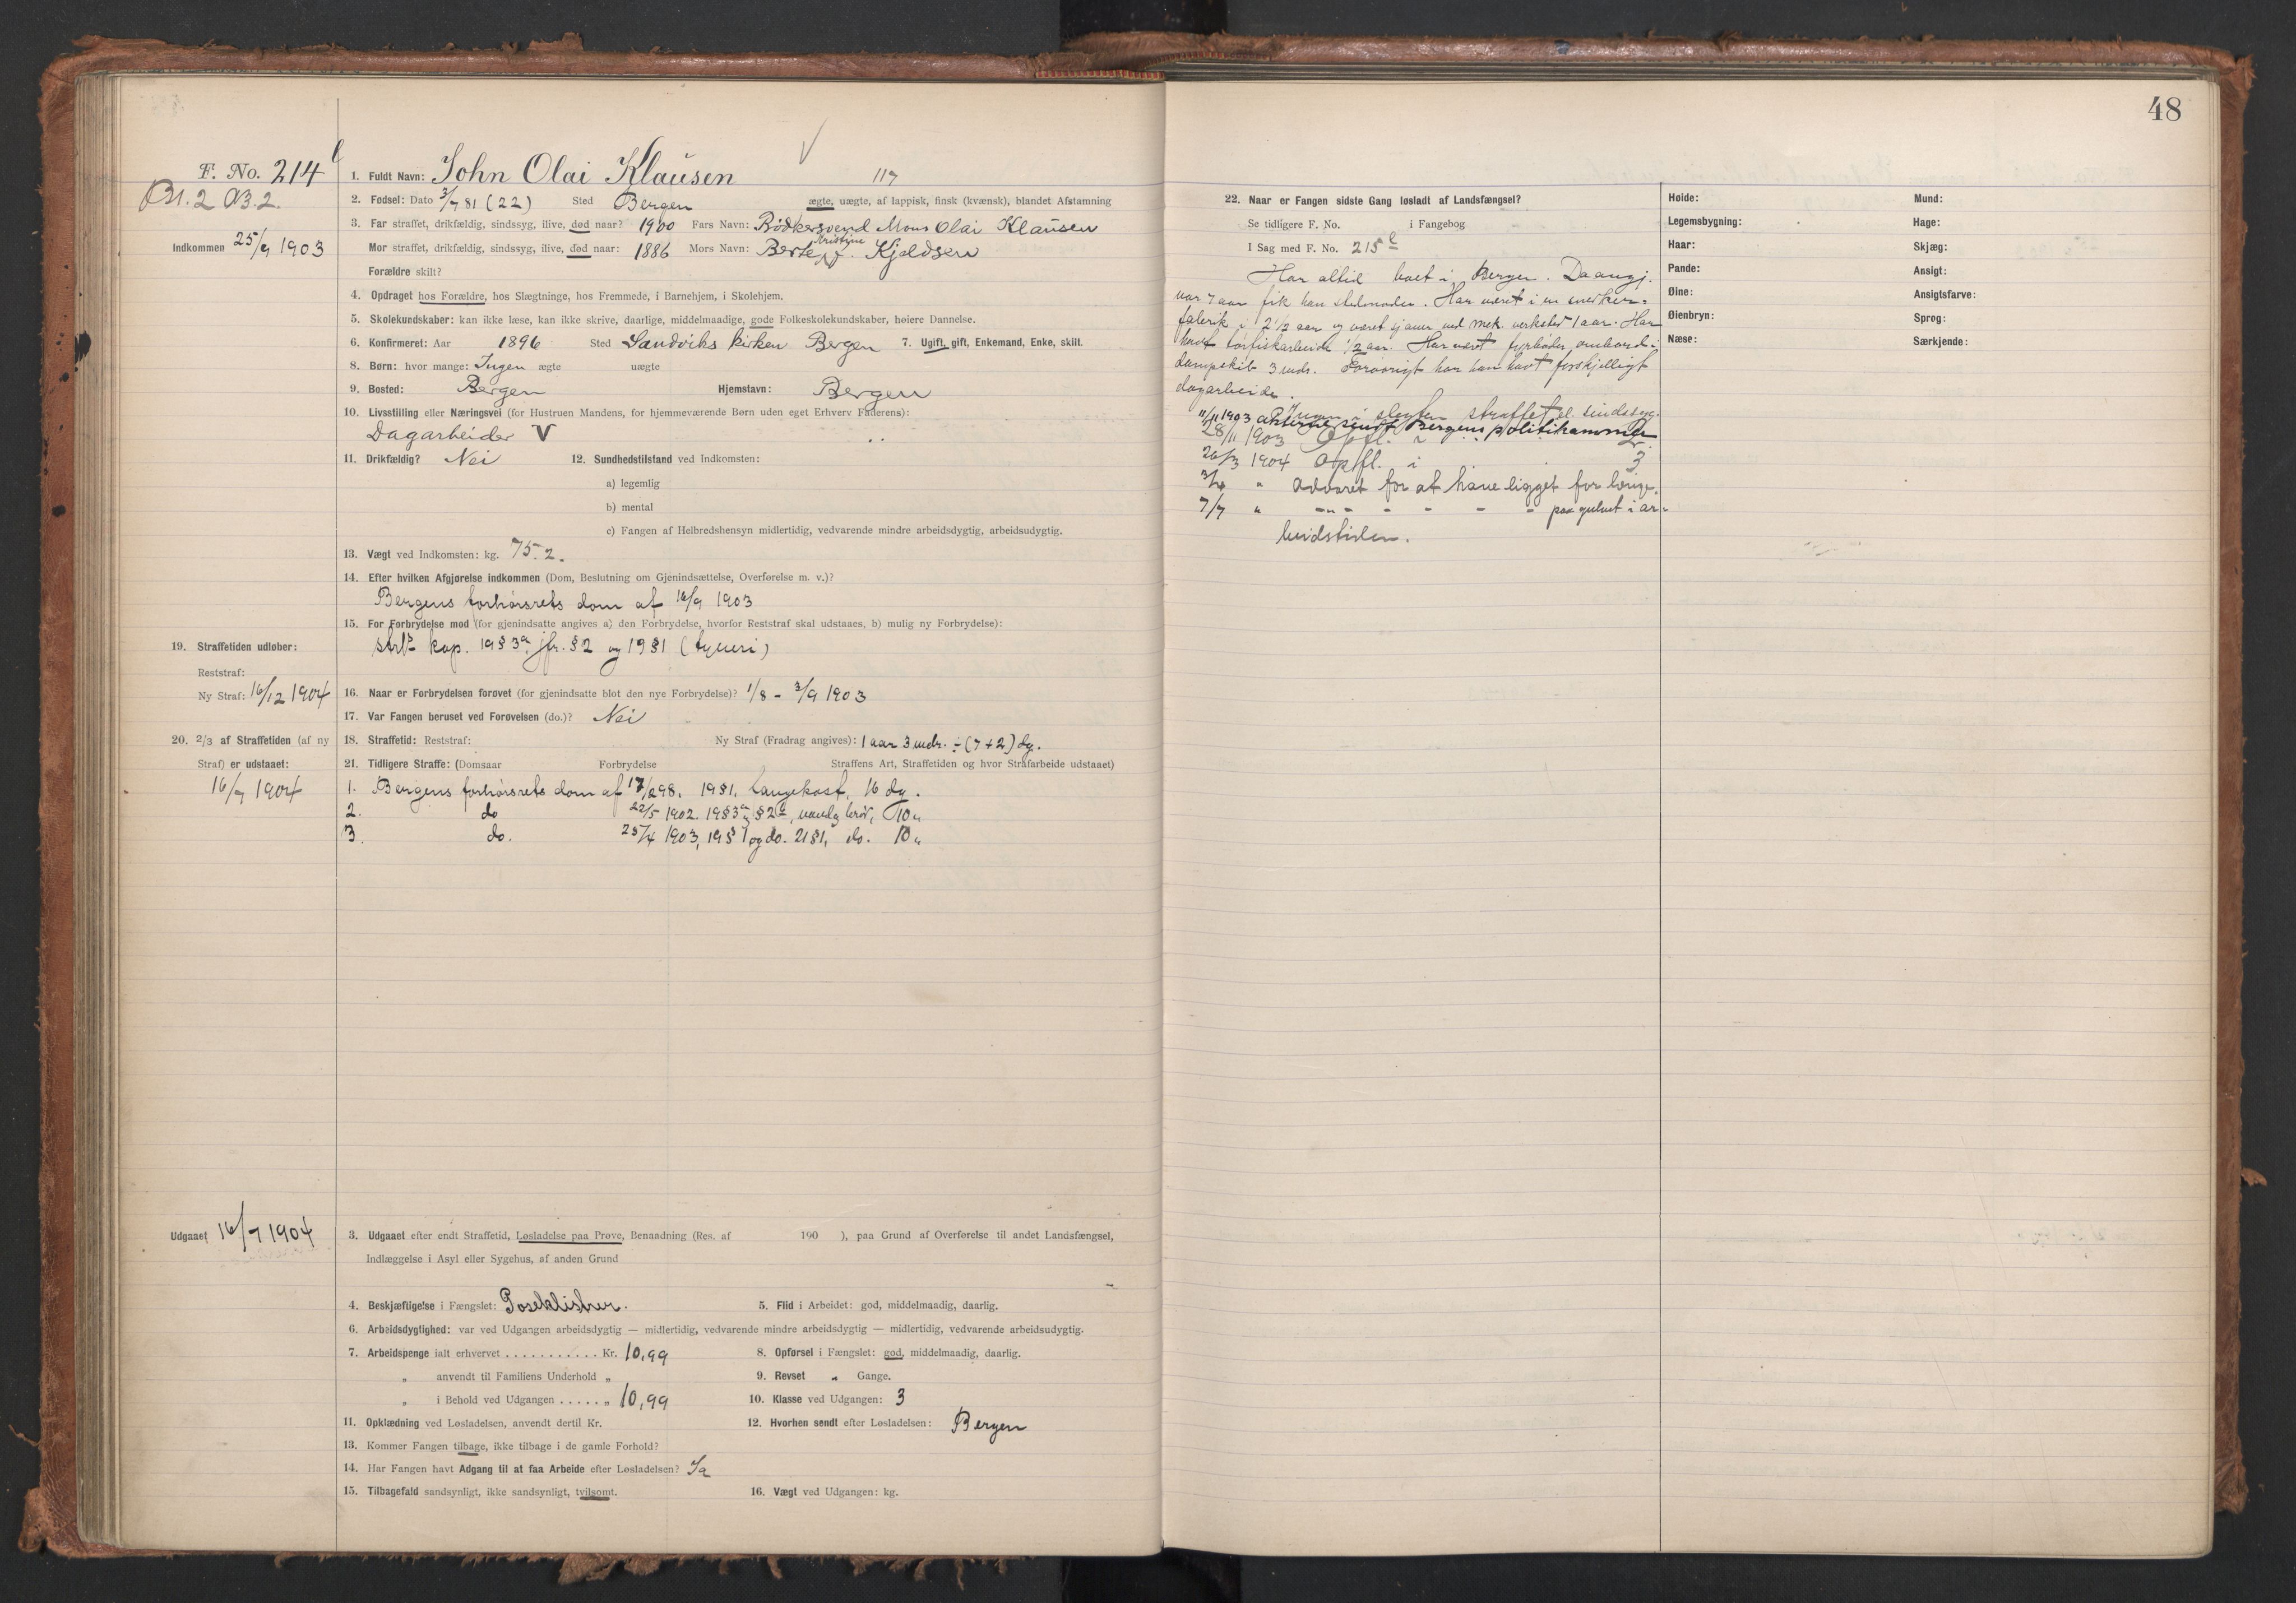 48
F. No. 214 l
Bl. 2 AB. 2.
Indkommen 25/9 1903
1. Fuldt Navn: John Olai Klausen 117
2. Fødsel: Dato 3/7 81 (22) Sted Bergen ægte, uægte, af lappisk, finsk (kvænsk), blandet Afstamning
3. Far straffet, drikfældig, sindssyg, ilive, død naar? 1900 Fars Navn: Bødkersvend Mons Olai Klausen
Mor straffet, drikfældig, sindssyg, ilive, død naar: 1886 Mors Navn: Berte Kristine f. Kjeldsen
Forældre skilt?
4. Opdraget hos Forældre, hos Slægtninge, hos Fremmede, i Barnehjem, i Skolehjem.
5. Skolekundskaber: kan ikke læse, kan ikke skrive, daarlige, middelmaadige, gode Folkeskolekundskaber, høiere Dannelse.
6. Konfirmeret: Aar 1896 Sted Sandviks kirken Bergen 7. Ugift, gift, Enkemand, Enke, skilt.
8. Børn: hvor mange: Ingen ægte uægte
9. Bosted: Bergen Hjemstavn: Bergen
10. Livsstilling eller Næringsvei (for Hustruen Mandens, for hjemmeværende Børn uden eget Erhverv Faderens):
Dagarbeider V
11. Drikfældig? Nei 12. Sundhedstilstand ved Indkomsten:
a) legemlig
b) mental
c) Fangen af Helbredshensyn midlertidig, vedvarende mindre arbeidsdygtig, arbeidsudygtig.
13. Vægt ved Indkomsten: kg. 75.2.
14. Efter hvilken Afgjørelse indkommen (Dom, Beslutning om Gjenindsættelse, Overførelse m. v.)?
Bergens forhørsrets dom af 16/9 1903
15. For Forbrydelse mod (for gjenindsatte angives a) den Forbrydelse, hvorfor Reststraf skal udstaaes, b) mulig ny Forbrydelse):
strl. kap. 19 § 3a, jfr. § 2 og 19 § 1 (tyveri)
19. Straffetiden udløber:
Reststraf:
Ny Straf: 16/12 1904
16. Naar er Forbrydelsen forøvet (for gjenindsatte blot den nye Forbrydelse)? 1/8 - 3/9 1903
17. Var Fangen beruset ved Forøvelsen (do.)? Nei
20. 2/3 af Straffetiden (af ny
Straf) er udstaaet:
16/7 1904
18. Straffetid: Reststraf: Ny Straf (Fradrag angives): 1 aar 3 mdr. ÷ (7+2) dg.
21. Tidligere Straffe: (Domsaar Forbrydelse Straffens Art, Straffetiden og hvor Strafarbeide udstaaet)
1. Bergens forhørsrets dom af 17/2 98. 19 § 1. fangekost, 16 dg.
2. do 22/5 1902. 19 § 3a, § 2, vand og brød, 10 "
3. do. 25/4 1903, 19 § 1 og do. 21 § 1, do. 10 "
Udgaaet 16/7 1904
3. Udgaaet efter endt Straffetid, Løsladelse paa Prøve, Benaadning (Res. af 190 ), paa Grund af Overførelse til andet Landsfængsel,
Indlæggelse i Asyl eller Sygehus, af anden Grund
4. Beskjæftigelse i Fængslet: Poseklistrer. 5. Flid i Arbeidet: god, middelmaadig, daarlig.
6. Arbeidsdygtighed: var ved Udgangen arbeidsdygtig — midlertidig, vedvarende mindre arbeidsdygtig — midlertidig, vedvarende arbeidsudygtig.
7. Arbeidspenge ialt erhvervet ........... Kr. 10,99 8. Opførsel i Fængslet: god, middelmaadig, daarlig.
" anvendt til Familiens Underhold " 9. Revset " Gange.
" i Behold ved Udgangen ..... " 10,99 10. Klasse ved Udgangen: 3
11. Opklædning ved Løsladelsen, anvendt dertil Kr. 12. Hvorhen sendt efter Løsladelsen: Bergen
13. Kommer Fangen tilbage, ikke tilbage i de gamle Forhold?
14. Har Fangen havt Adgang til at faa Arbeide efter Løsladelsen? Ja
15. Tilbagefald sandsynligt, ikke sandsynligt, tvilsomt. 16. Vægt ved Udgangen: kg.
22. Naar er Fangen sidste Gang løsladt af Landsfængsel?
Se tidligere F. No. i Fangebog
I Sag med F. No. 215 l
Har altid boet i Bergen. Da angj.
var 7 aar fik han stedmoder. Har været i en snedker-
fabrik i 2 1/2 aar og været sjauer ved mek. verksted 1 aar. Har
havt tørfiskarbeide 1/2 aar. Har været fyrbøder ombord i
dampskib 3 mdr. Forøvrigt har han havt forskjelligt
dagarbeide.
Ingen i slægten straffet el. sindssyg.
11/11 1903 akterne sendt Bergens politikammer
28/11 1903 Opfl. i 2
26/3 1904 Opfl. i 3
3/4 " Advaret for at have ligget for længe.
7/7 " -"- - - - - paa gulvet i ar-
beidstiden.
Høide: Mund:
Legemsbygning: Hage:
Haar: Skjæg:
Pande: Ansigt:
Øine: Ansigtsfarve:
Øienbryn: Sprog:
Næse: Særkjende: